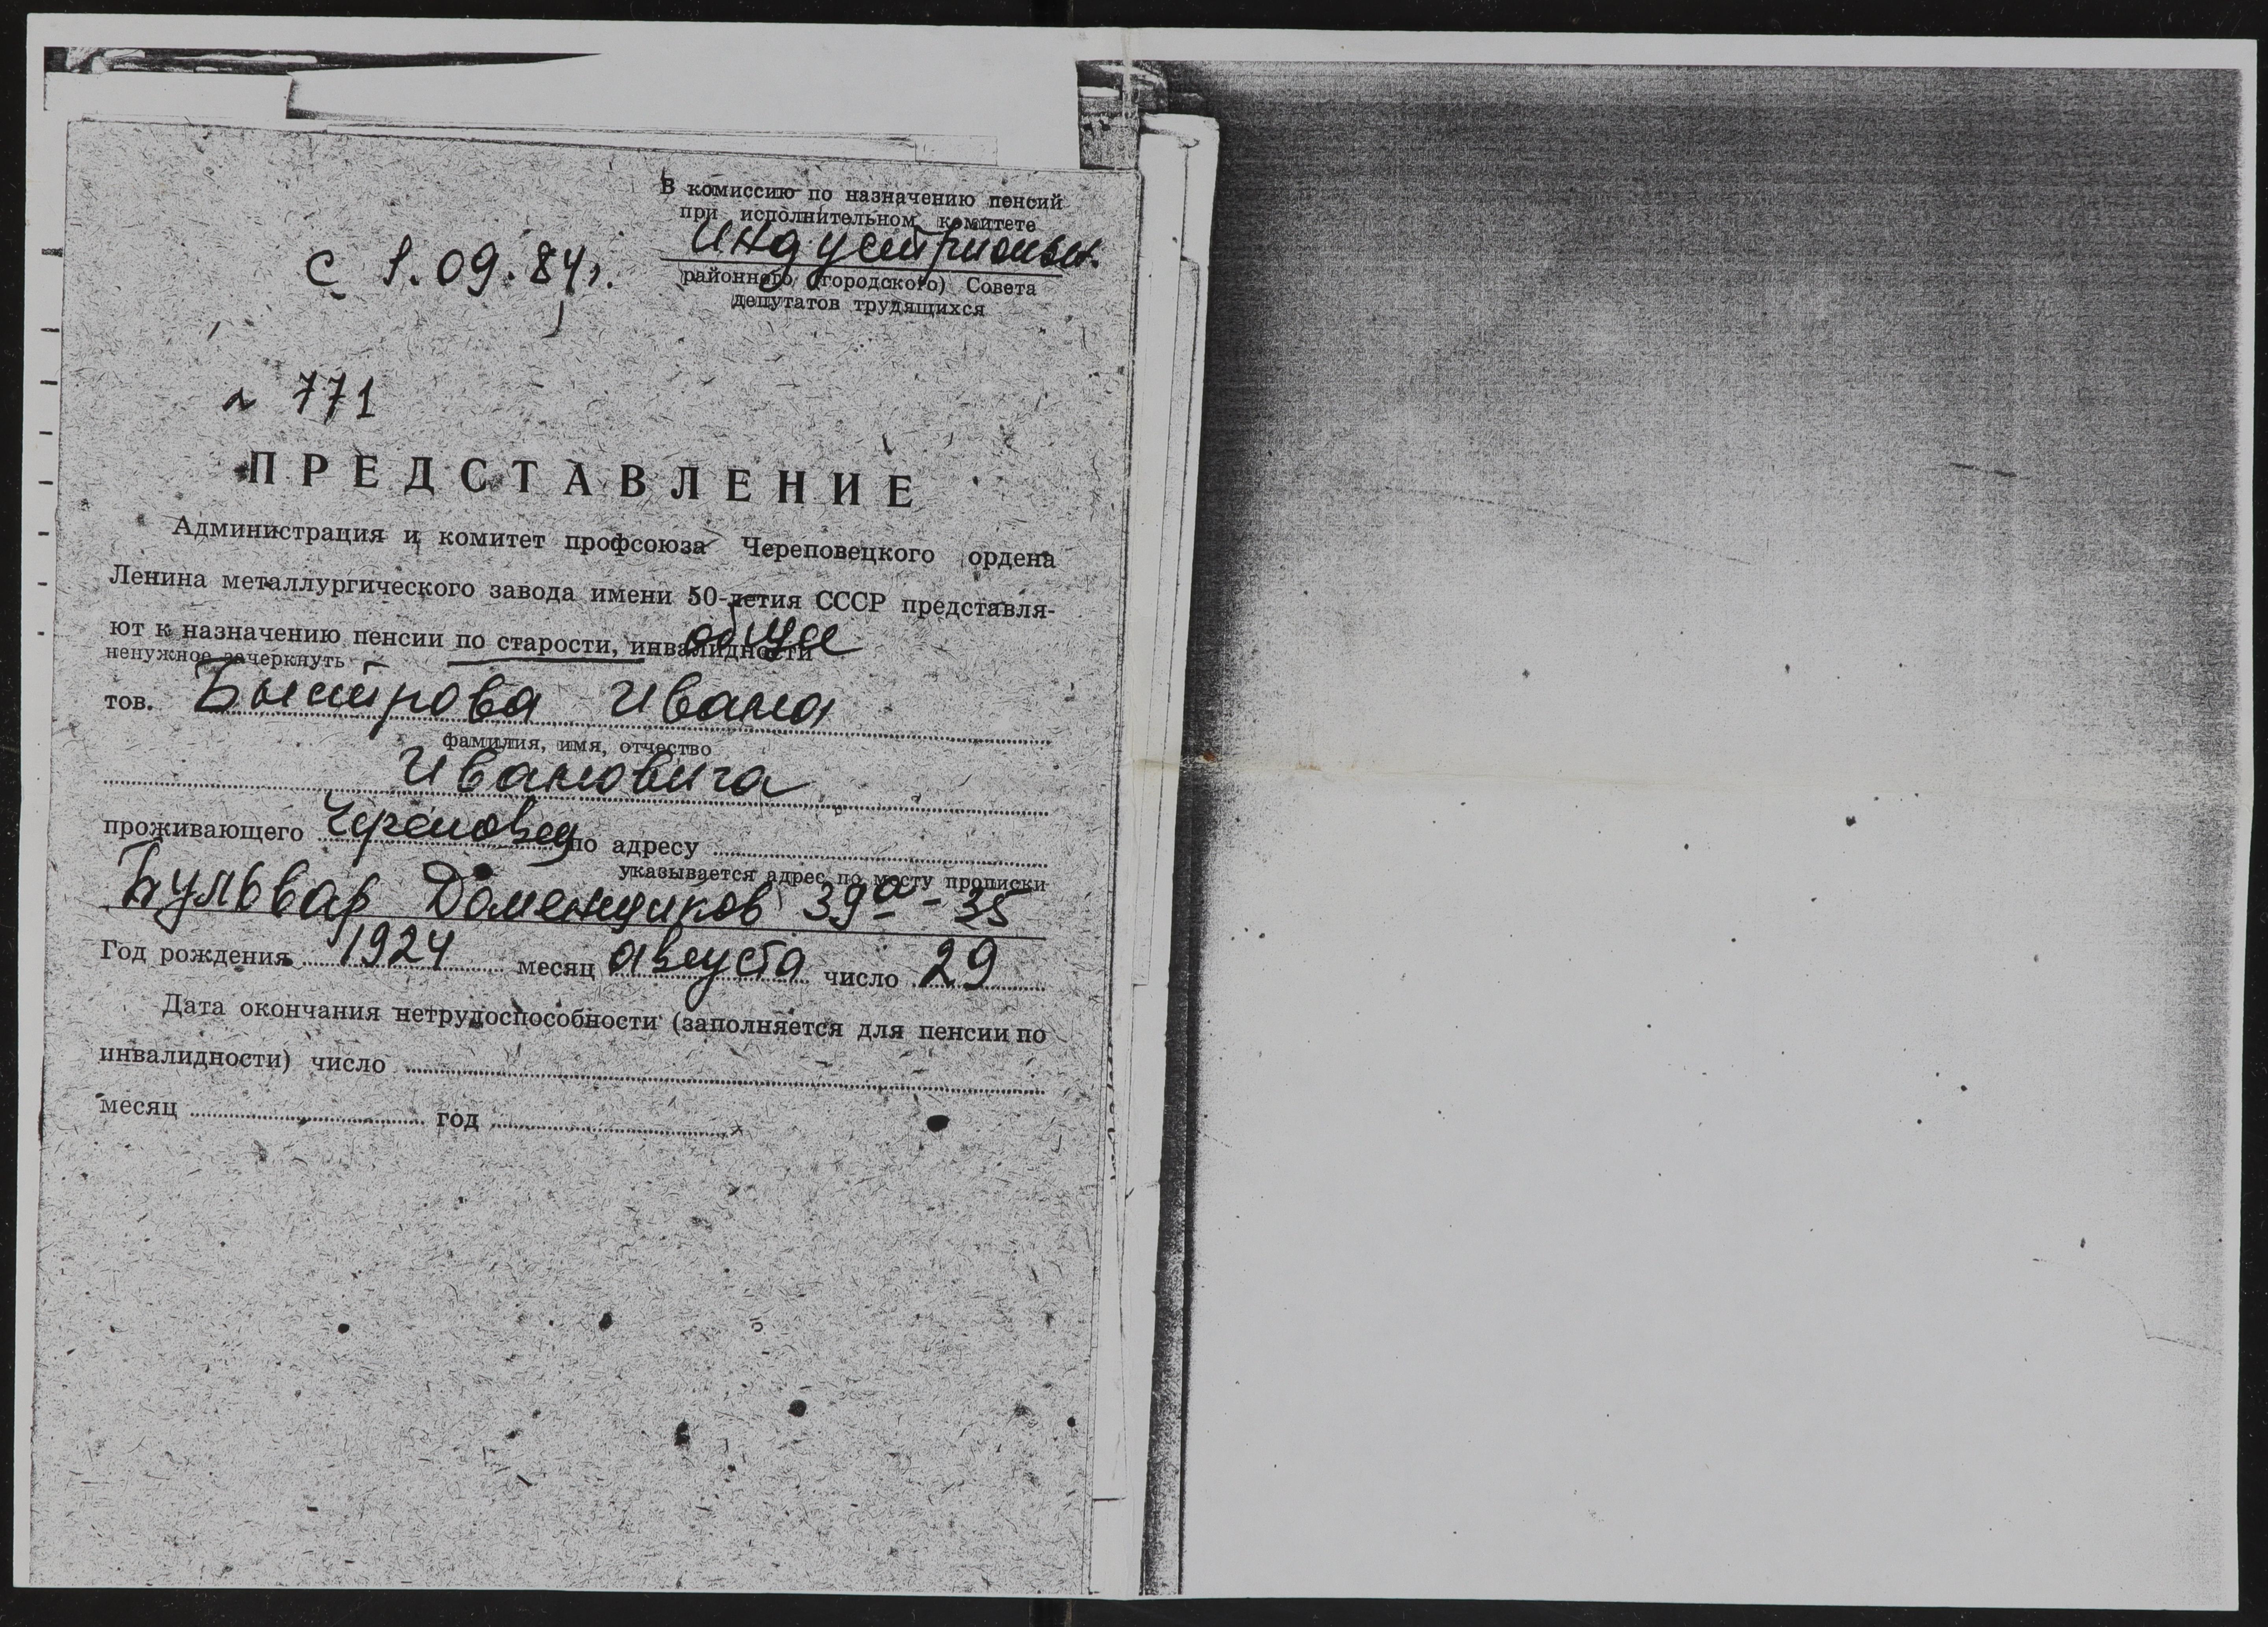 В комиссию по назначению пенсий
при исполнительном комитете
Индустриальн.
районного (городского) Совета
депутатов трудящихся
с 1.09.84г.
771
ПРЕДСТАВЛЕНИЕ
Администрация и комитет профсоюза Череповецкого ордена
Ленина металлургического завода имени 50-летия СССР представля-
ют к назначению пенсии по старости, инвалидности
ненужное зачеркнуть
тов. Быстрова Ивана
фамилия, имя, отчество
Ивановича
проживающего Череповец по адресу
указывается адрес по месту прописки
Бульвар Доменщиков 39а - 35
Год рождения 1924 месяц августа число 29
Дата окончания нетрудоспособности (заполняется для пенсии по
инвалидности) число
месяц год